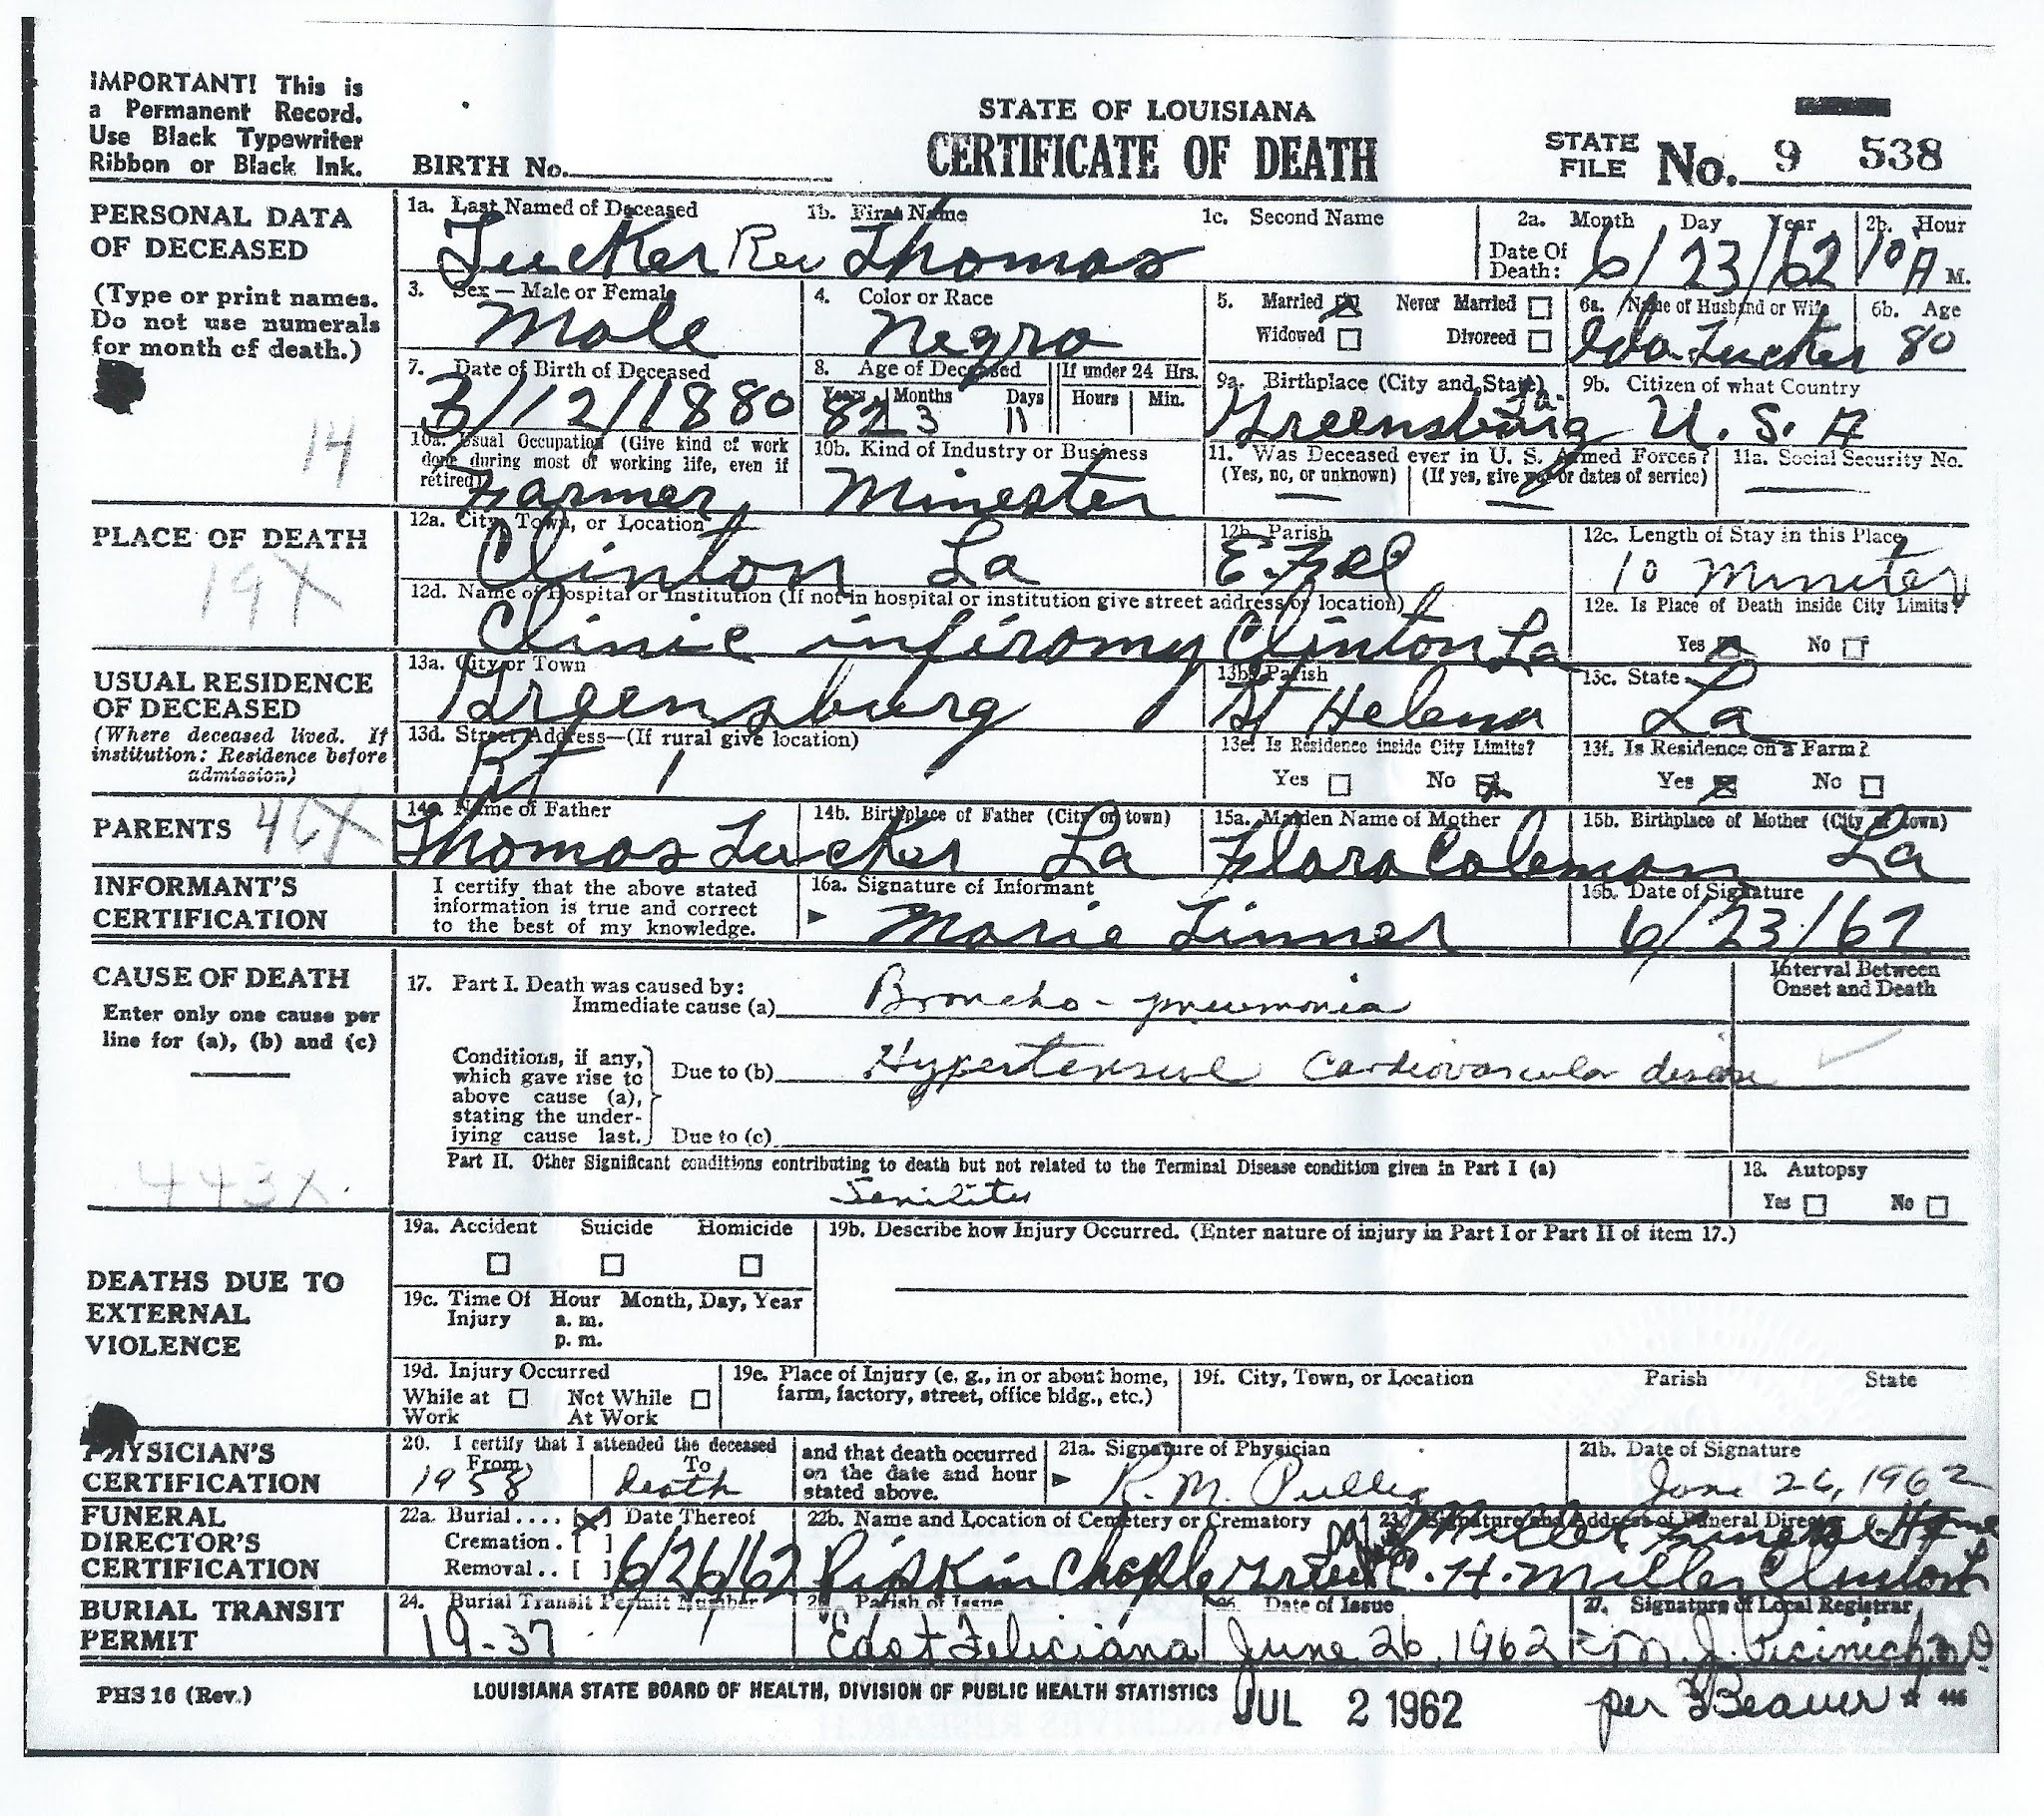 IMPORTANT! This is
a Permanent Record.
Use Black Typewriter
Ribbon or Black Ink.
BIRTH No.
STATE OF LOUISIANA
CERTIFICATE OF DEATH
STATE FILE No. 9 538
PERSONAL DATA OF DECEASED
(Type or print names. Do not use numerals for month of death.)
14
1a. Last Named of Deceased 1b. First Name 1c. Second Name 2a. Month Day Year 2b. Hour
Tucker Rev Thomas Date Of Death: 6/23/62 10 A M.
3. Sex — Male or Female 4. Color or Race 5. Married Never Married 6a. Name of Husband or Wife 6b. Age
Male Negro Widowed Divorced Ida Tucker 80
7. Date of Birth of Deceased 8. Age of Deceased If under 24 Hrs. 9a. Birthplace (City and State) 9b. Citizen of what Country
Years Months Days Hours Min.
3/12/1880 82 3 11 Greensburg La. U. S. A
10a. Usual Occupation (Give kind of work done during most of working life, even if retired) 10b. Kind of Industry or Business 11. Was Deceased ever in U. S. Armed Forces? 11a. Social Security No.
(Yes, no, or unknown) (If yes, give war or dates of service)
Farmer Minester — — —
PLACE OF DEATH
19X
12a. City, Town, or Location 12b. Parish 12c. Length of Stay in this Place
Clinton La E. Fel 10 Minutes
12d. Name of Hospital or Institution (If not in hospital or institution give street address or location) 12e. Is Place of Death inside City Limits?
Clinic infiromy Clinton La Yes No
USUAL RESIDENCE OF DECEASED
(Where deceased lived. If institution: Residence before admission)
13a. City or Town 13b. Parish 13c. State
Greensburg St Helena La
13d. Street Address—(If rural give location) 13e. Is Residence inside City Limits? 13f. Is Residence on a Farm?
Rt 1 Yes No Yes No
PARENTS 46X
14a. Name of Father 14b. Birthplace of Father (City or town) 15a. Maiden Name of Mother 15b. Birthplace of Mother (City or town)
Thomas Tucker La Flora Coleman La
INFORMANT'S CERTIFICATION
I certify that the above stated information is true and correct to the best of my knowledge.
16a. Signature of Informant 16b. Date of Signature
Marie Linner 6/23/62
CAUSE OF DEATH
Enter only one cause per line for (a), (b) and (c)
17. Part I. Death was caused by: Interval Between Onset and Death
Immediate cause (a) Broncho-pneumonia
Conditions, if any, which gave rise to above cause (a), stating the underlying cause last.
Due to (b) Hypertensive Cardiovascular disease
Due to (c)
443X.
Part II. Other Significant conditions contributing to death but not related to the Terminal Disease condition given in Part I (a) 18. Autopsy
Senility Yes No
DEATHS DUE TO EXTERNAL VIOLENCE
19a. Accident Suicide Homicide 19b. Describe how Injury Occurred. (Enter nature of injury in Part I or Part II of item 17.)
19c. Time Of Injury Hour Month, Day, Year
a. m.
p. m.
19d. Injury Occurred 19e. Place of Injury (e. g., in or about home, farm, factory, street, office bldg., etc.) 19f. City, Town, or Location Parish State
While at Work Not While At Work
PHYSICIAN'S CERTIFICATION
20. I certify that I attended the deceased and that death occurred on the date and hour stated above. 21a. Signature of Physician 21b. Date of Signature
From To
1958 death R. M. June 26, 1962
FUNERAL DIRECTOR'S CERTIFICATION
22a. Burial.... [X] Date Thereof 22b. Name and Location of Cemetery or Crematory 23. Signature and Address of Funeral Director
Cremation . [ ] Miller Funeral Home
Removal . . [ ] 6/26/62 Pipkin Chaple C. H. Miller Clinton
BURIAL TRANSIT PERMIT
24. Burial Transit Permit Number 25. Parish of Issue 26. Date of Issue 27. Signature of Local Registrar
19-37 East Feliciana June 26, 1962 M. J. Picinich M D.
PHS 16 (Rev.) LOUISIANA STATE BOARD OF HEALTH, DIVISION OF PUBLIC HEALTH STATISTICS JUL 2 1962 per Beauer 446